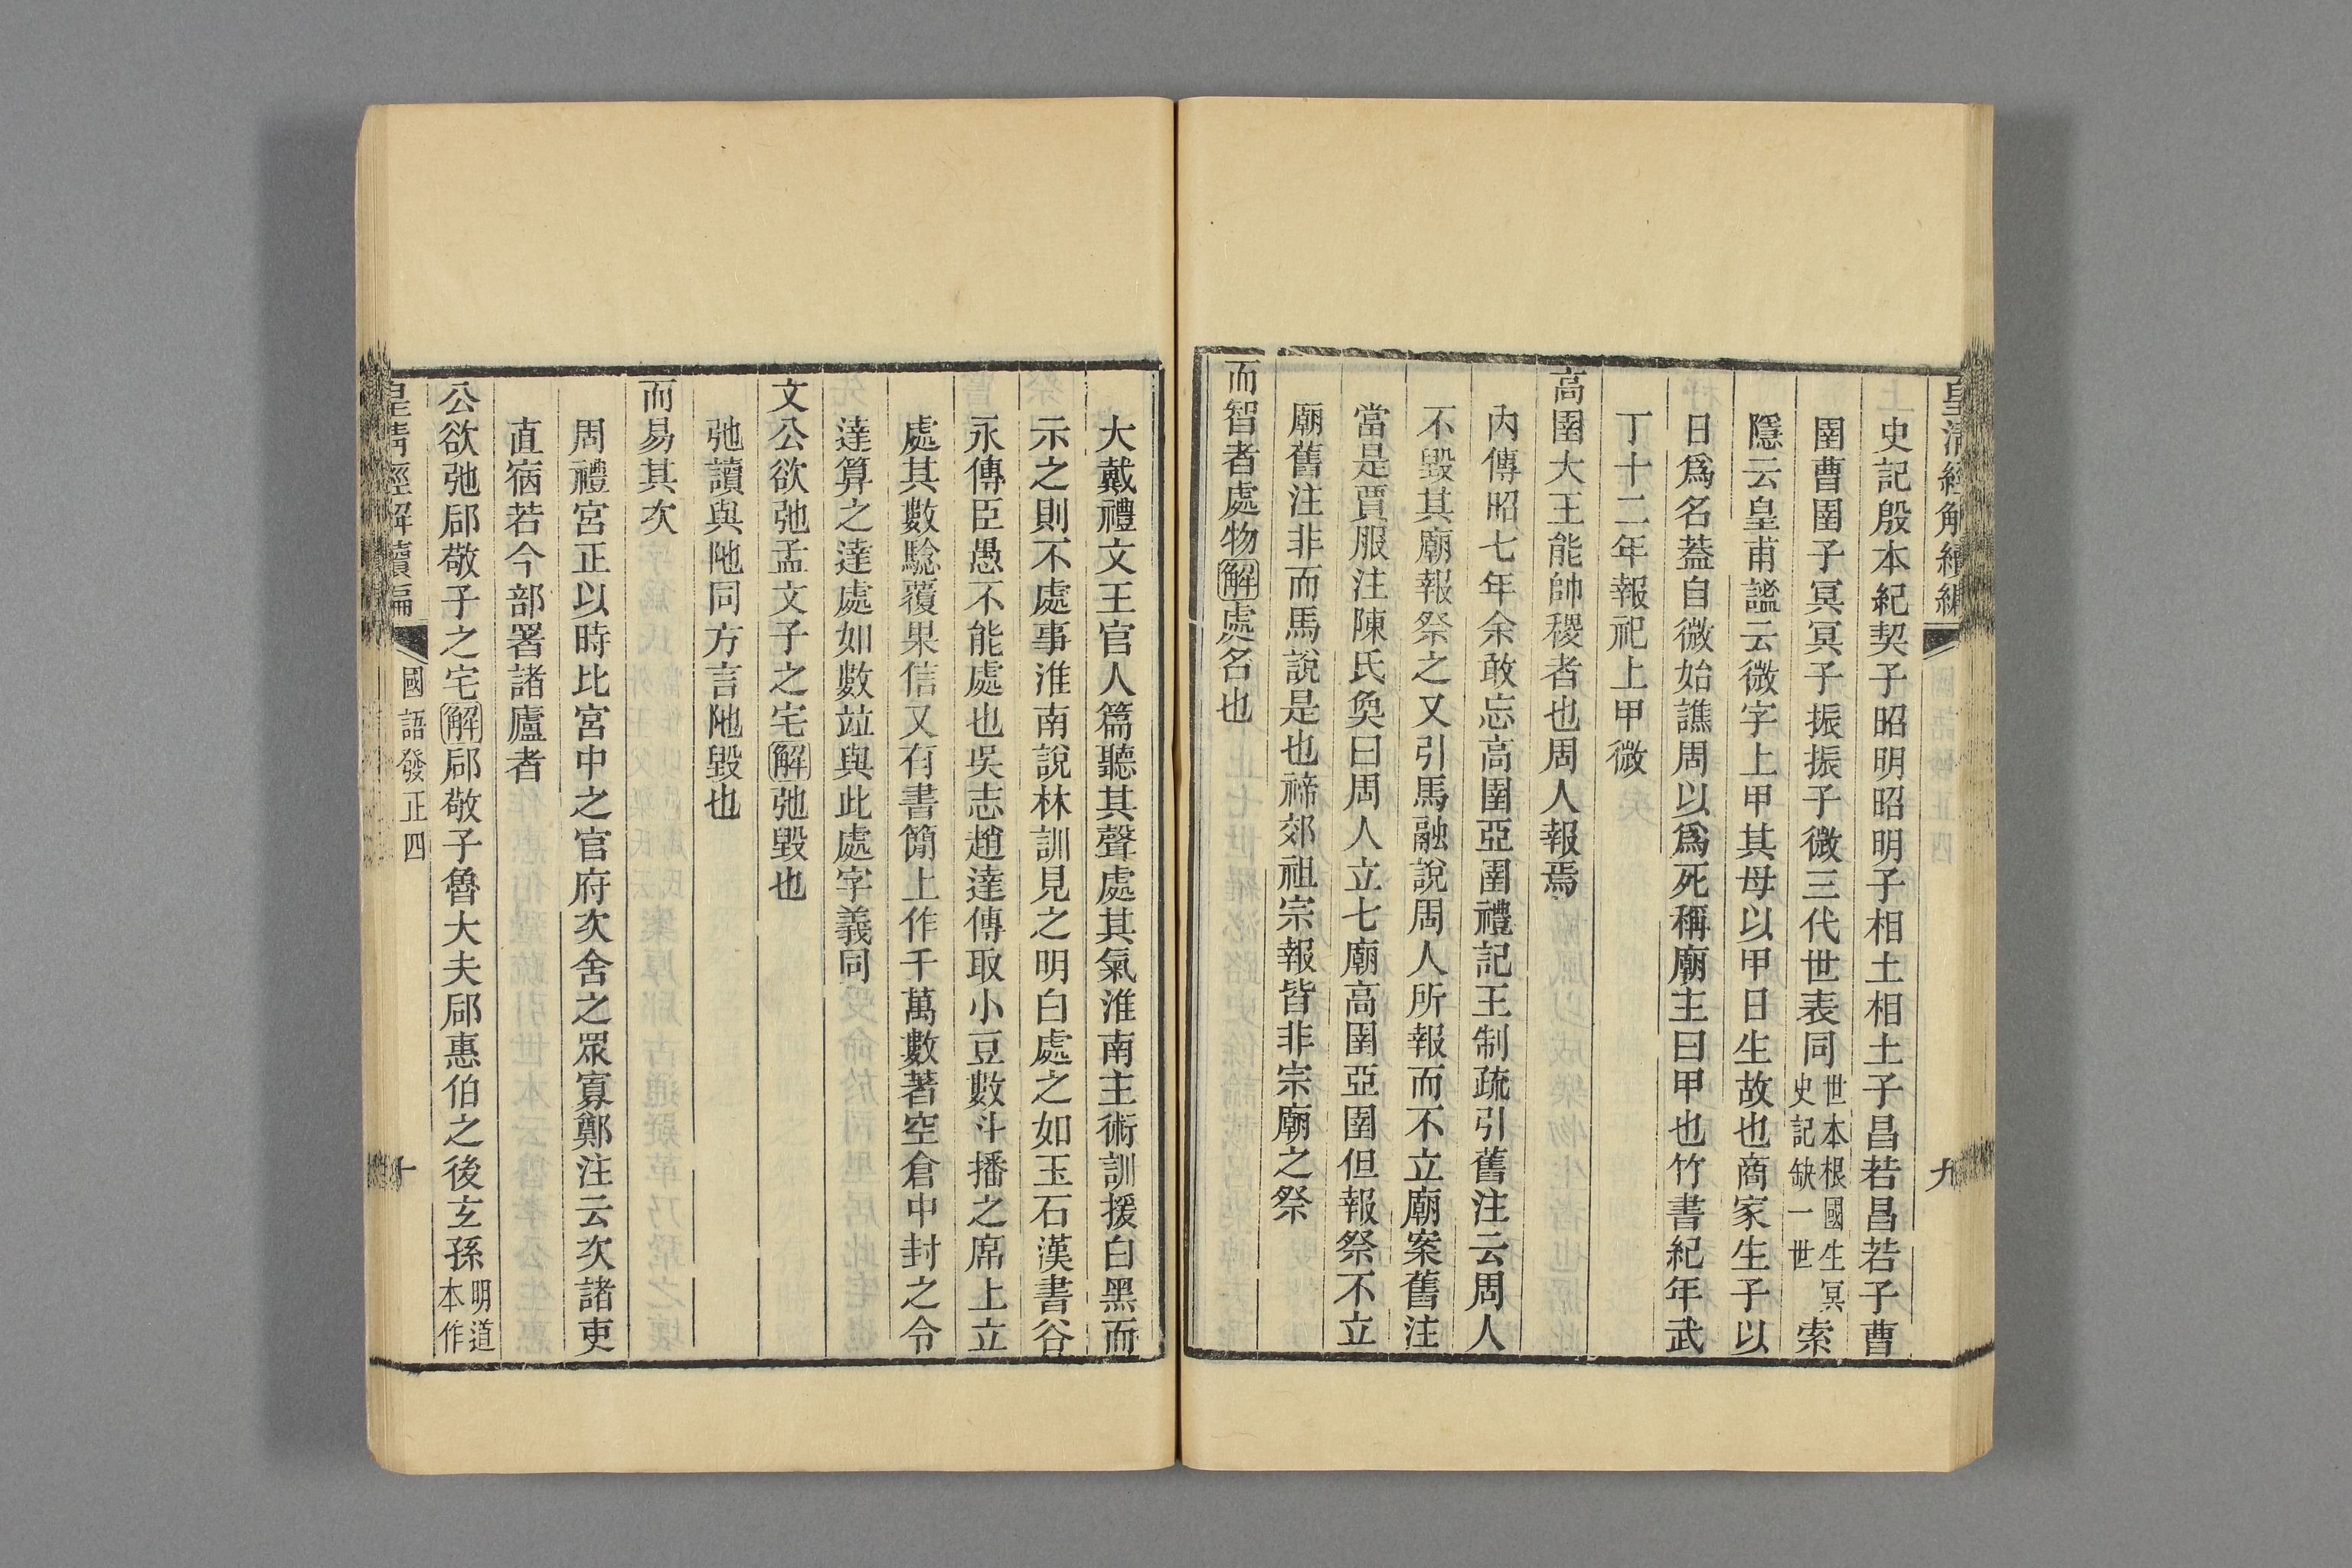 皇清經解續編
九
史記殷本紀契子昭明昭明子相土相土子昌若昌若子曹
圉曹圉子冥冥子振振子微三代世表同世本根國生冥史記缺一世索
隱云皇甫謐云微字上甲其母以甲日生故也商家生子以
日爲名蓋自微始譙周以爲死稱廟主曰甲也竹書紀年武
丁十二年報祀上甲微
高圉大王能帥稷者也周人報焉
內傳昭七年余敢忘高圉亞圉禮記王制疏引舊注云周人
不毀其廟報祭之又引馬融說周人所報而不立廟案舊注
當是賈服注陳氏奐曰周人立七廟高圉亞圉但報祭不立
廟舊注非而馬說是也禘郊祖宗報皆非宗廟之祭
而智者處物解處名也
大戴禮文王官人篇聽其聲處其氣淮南主術訓援白黑而
示之則不處事淮南說林訓見之明白處之如玉石漢書谷
永傳臣愚不能處也吳志趙達傳取小豆數斗播之席上立
處其數驗覆果信又有書簡上作千萬數著空倉中封之令
達算之達處如數竝與此處字義同
文公欲弛孟文子之宅解弛毀也
弛讀與阤同方言阤毀也
而易其次
周禮宮正以時比宮中之官府次舍之眾寡鄭注云次諸吏
直宿若今部署諸廬者
公欲弛郈敬子之宅解郈敬子魯大夫郈惠伯之後玄孫明道本作
皇清經解續編
國語發正四
十